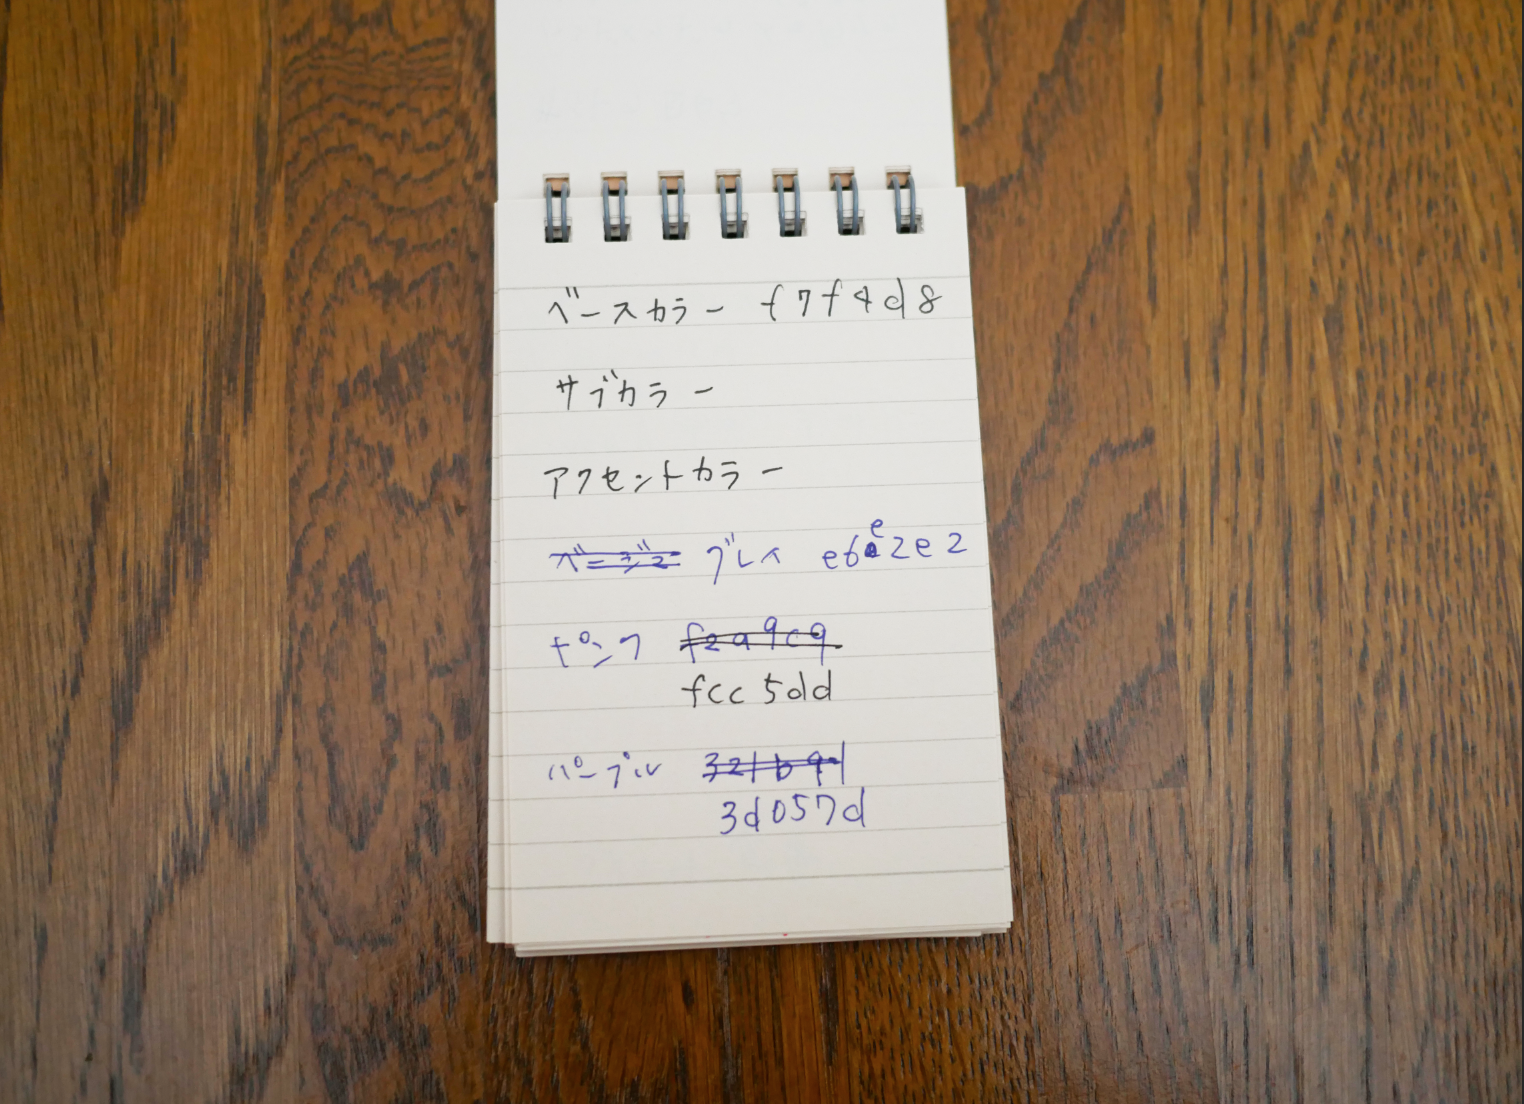 ベースカラー f7f4d8
サブカラー
アクセントカラー
ベージュ グレイ e6e2e2
ピンク f2a9c9
fcc5dd
パープル 321b91
3d057d